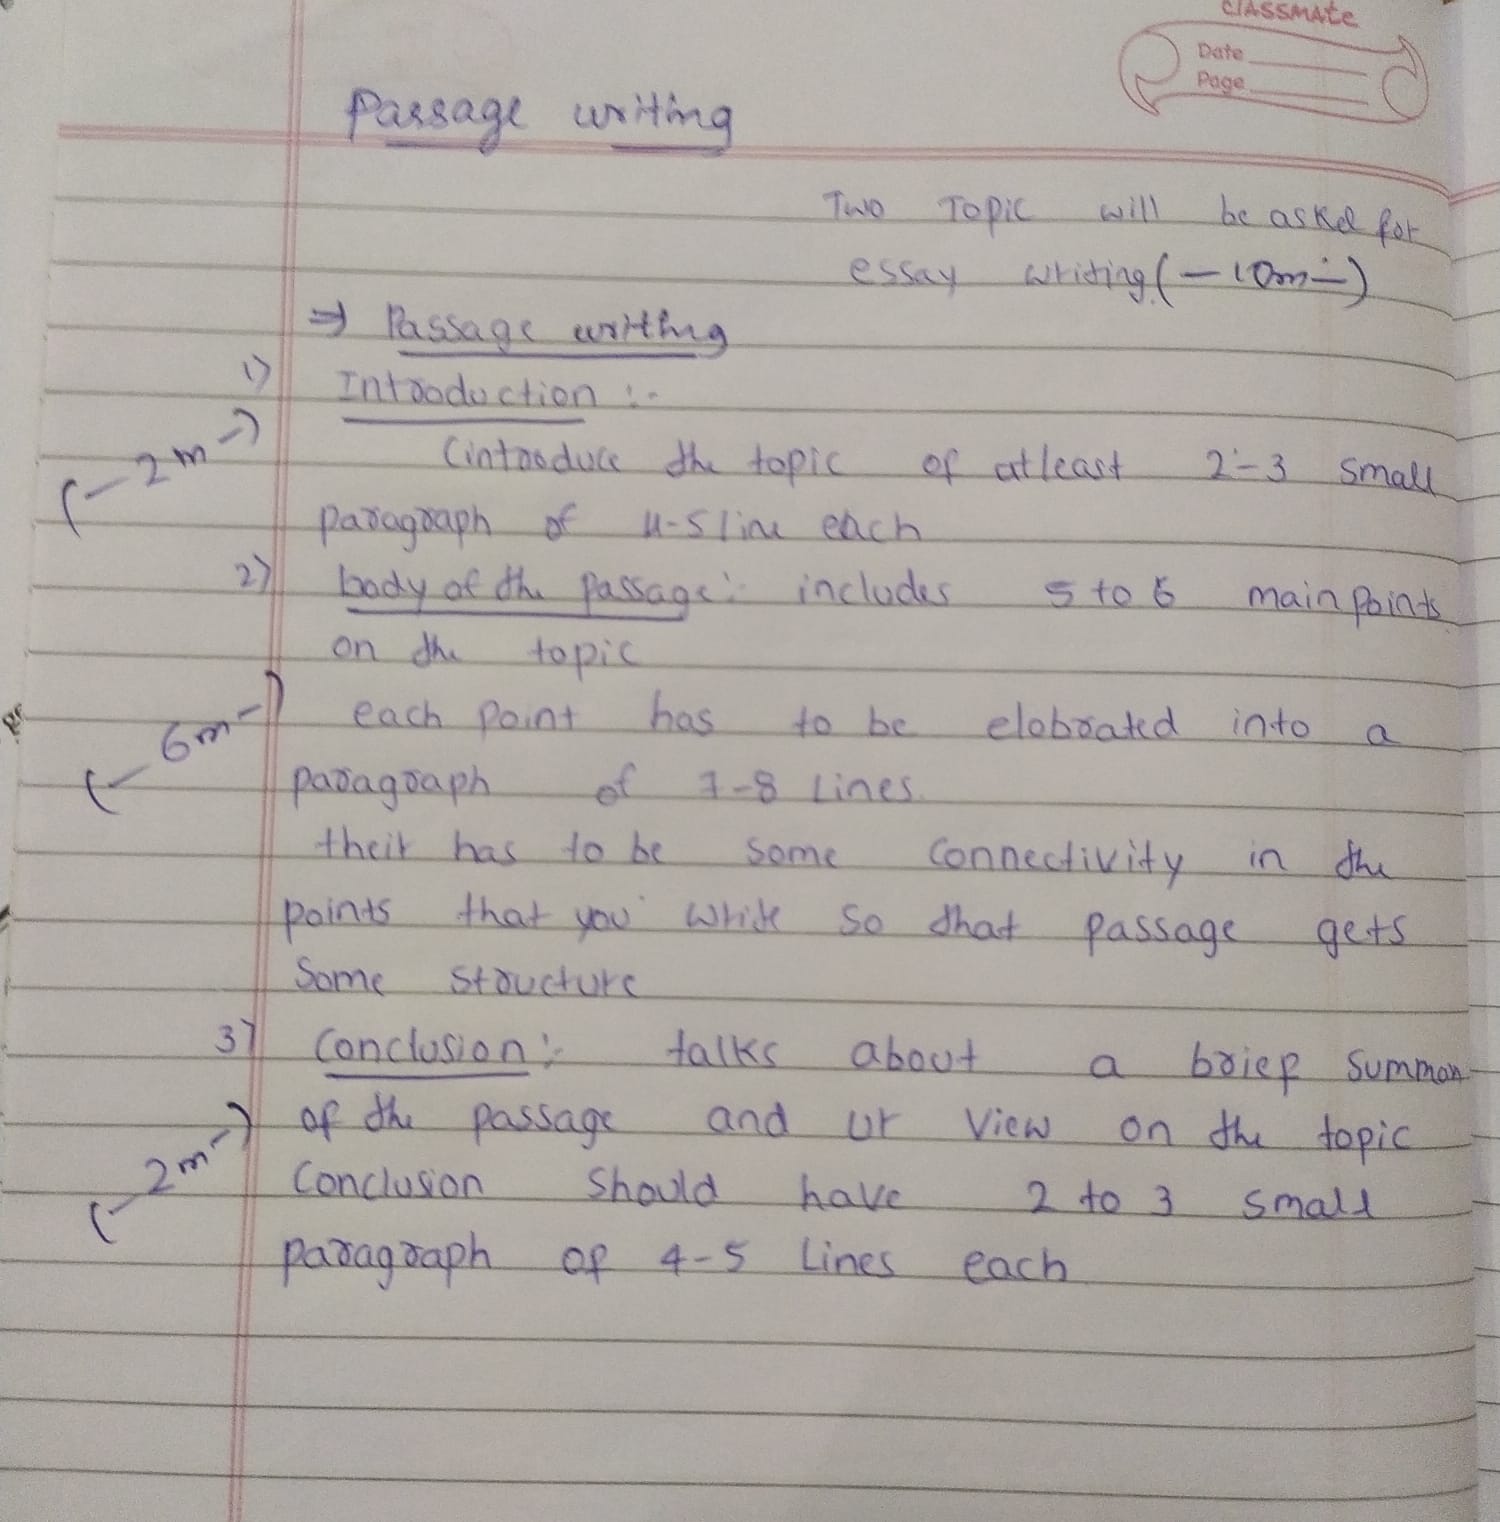 classmate
Date
Page
Passage writing
Two Topic will be asked for
essay writing (-10m-)
⇒ Passage writing
1) Introduction :-
(-2m-)
(introduce the topic of atleast 2-3 small
paragraph of 4-5 line each
2) body of the passage:- includes 5 to 6 main points
on the topic
(-6m-)
each point has to be elobrated into a
paragraph of 7-8 Lines.
their has to be some connectivity in the
points that you write so that passage gets
Some structure
3) Conclusion :- talks about a brief summon
(-2m-)
of the passage and ur view on the topic
Conclusion Should have 2 to 3 small
paragraph of 4-5 Lines each